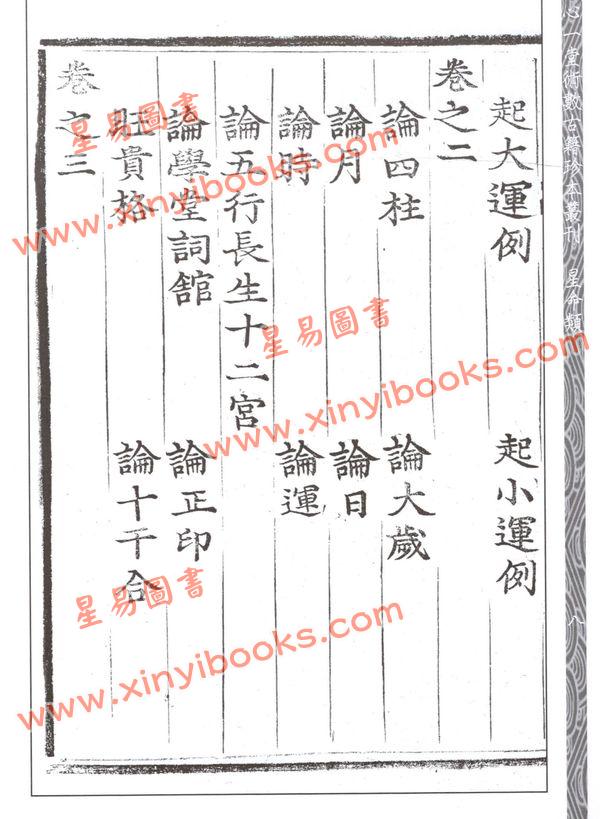 起大運例　起小運例
卷之二
論四柱　論大歲
論月　論日
論時　論運
論五行長生十二宮
論學堂詞館　論正印
旺貴格　論十干合
卷之三
心一堂術數古籍珍本叢刊　星命類
八
星易圖書
www.xinyibooks.com
星易圖書
www.xinyibooks.com
星易圖書
www.xinyibooks.com